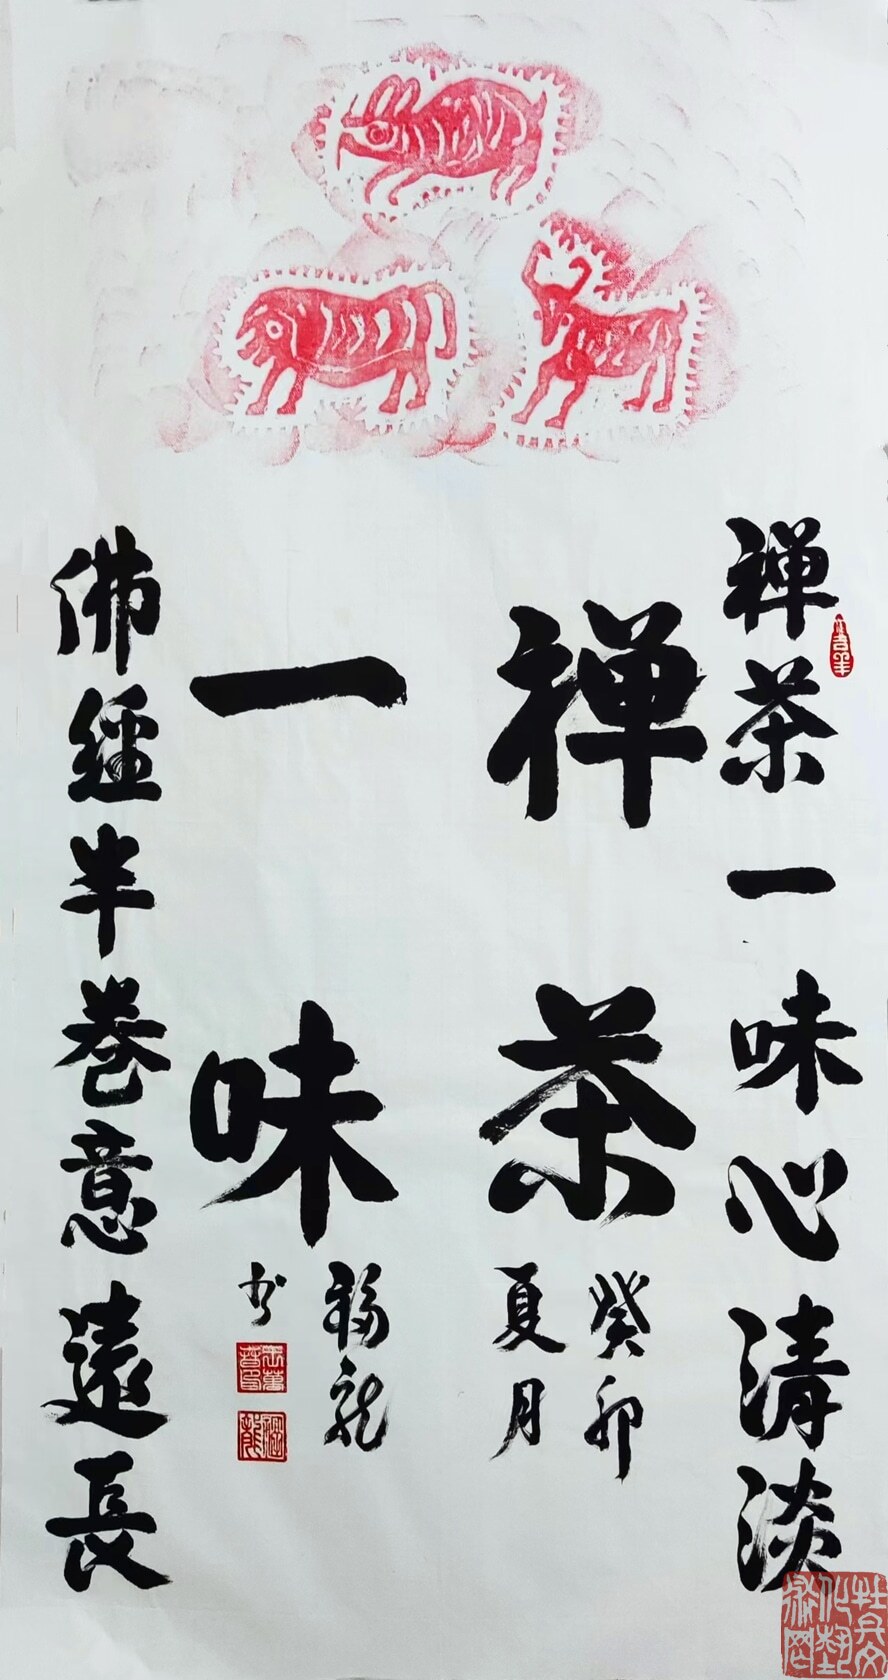 禅茶一味心清淡
禅茶
一味
癸卯
夏月
福龙
书
佛經半卷意遠長